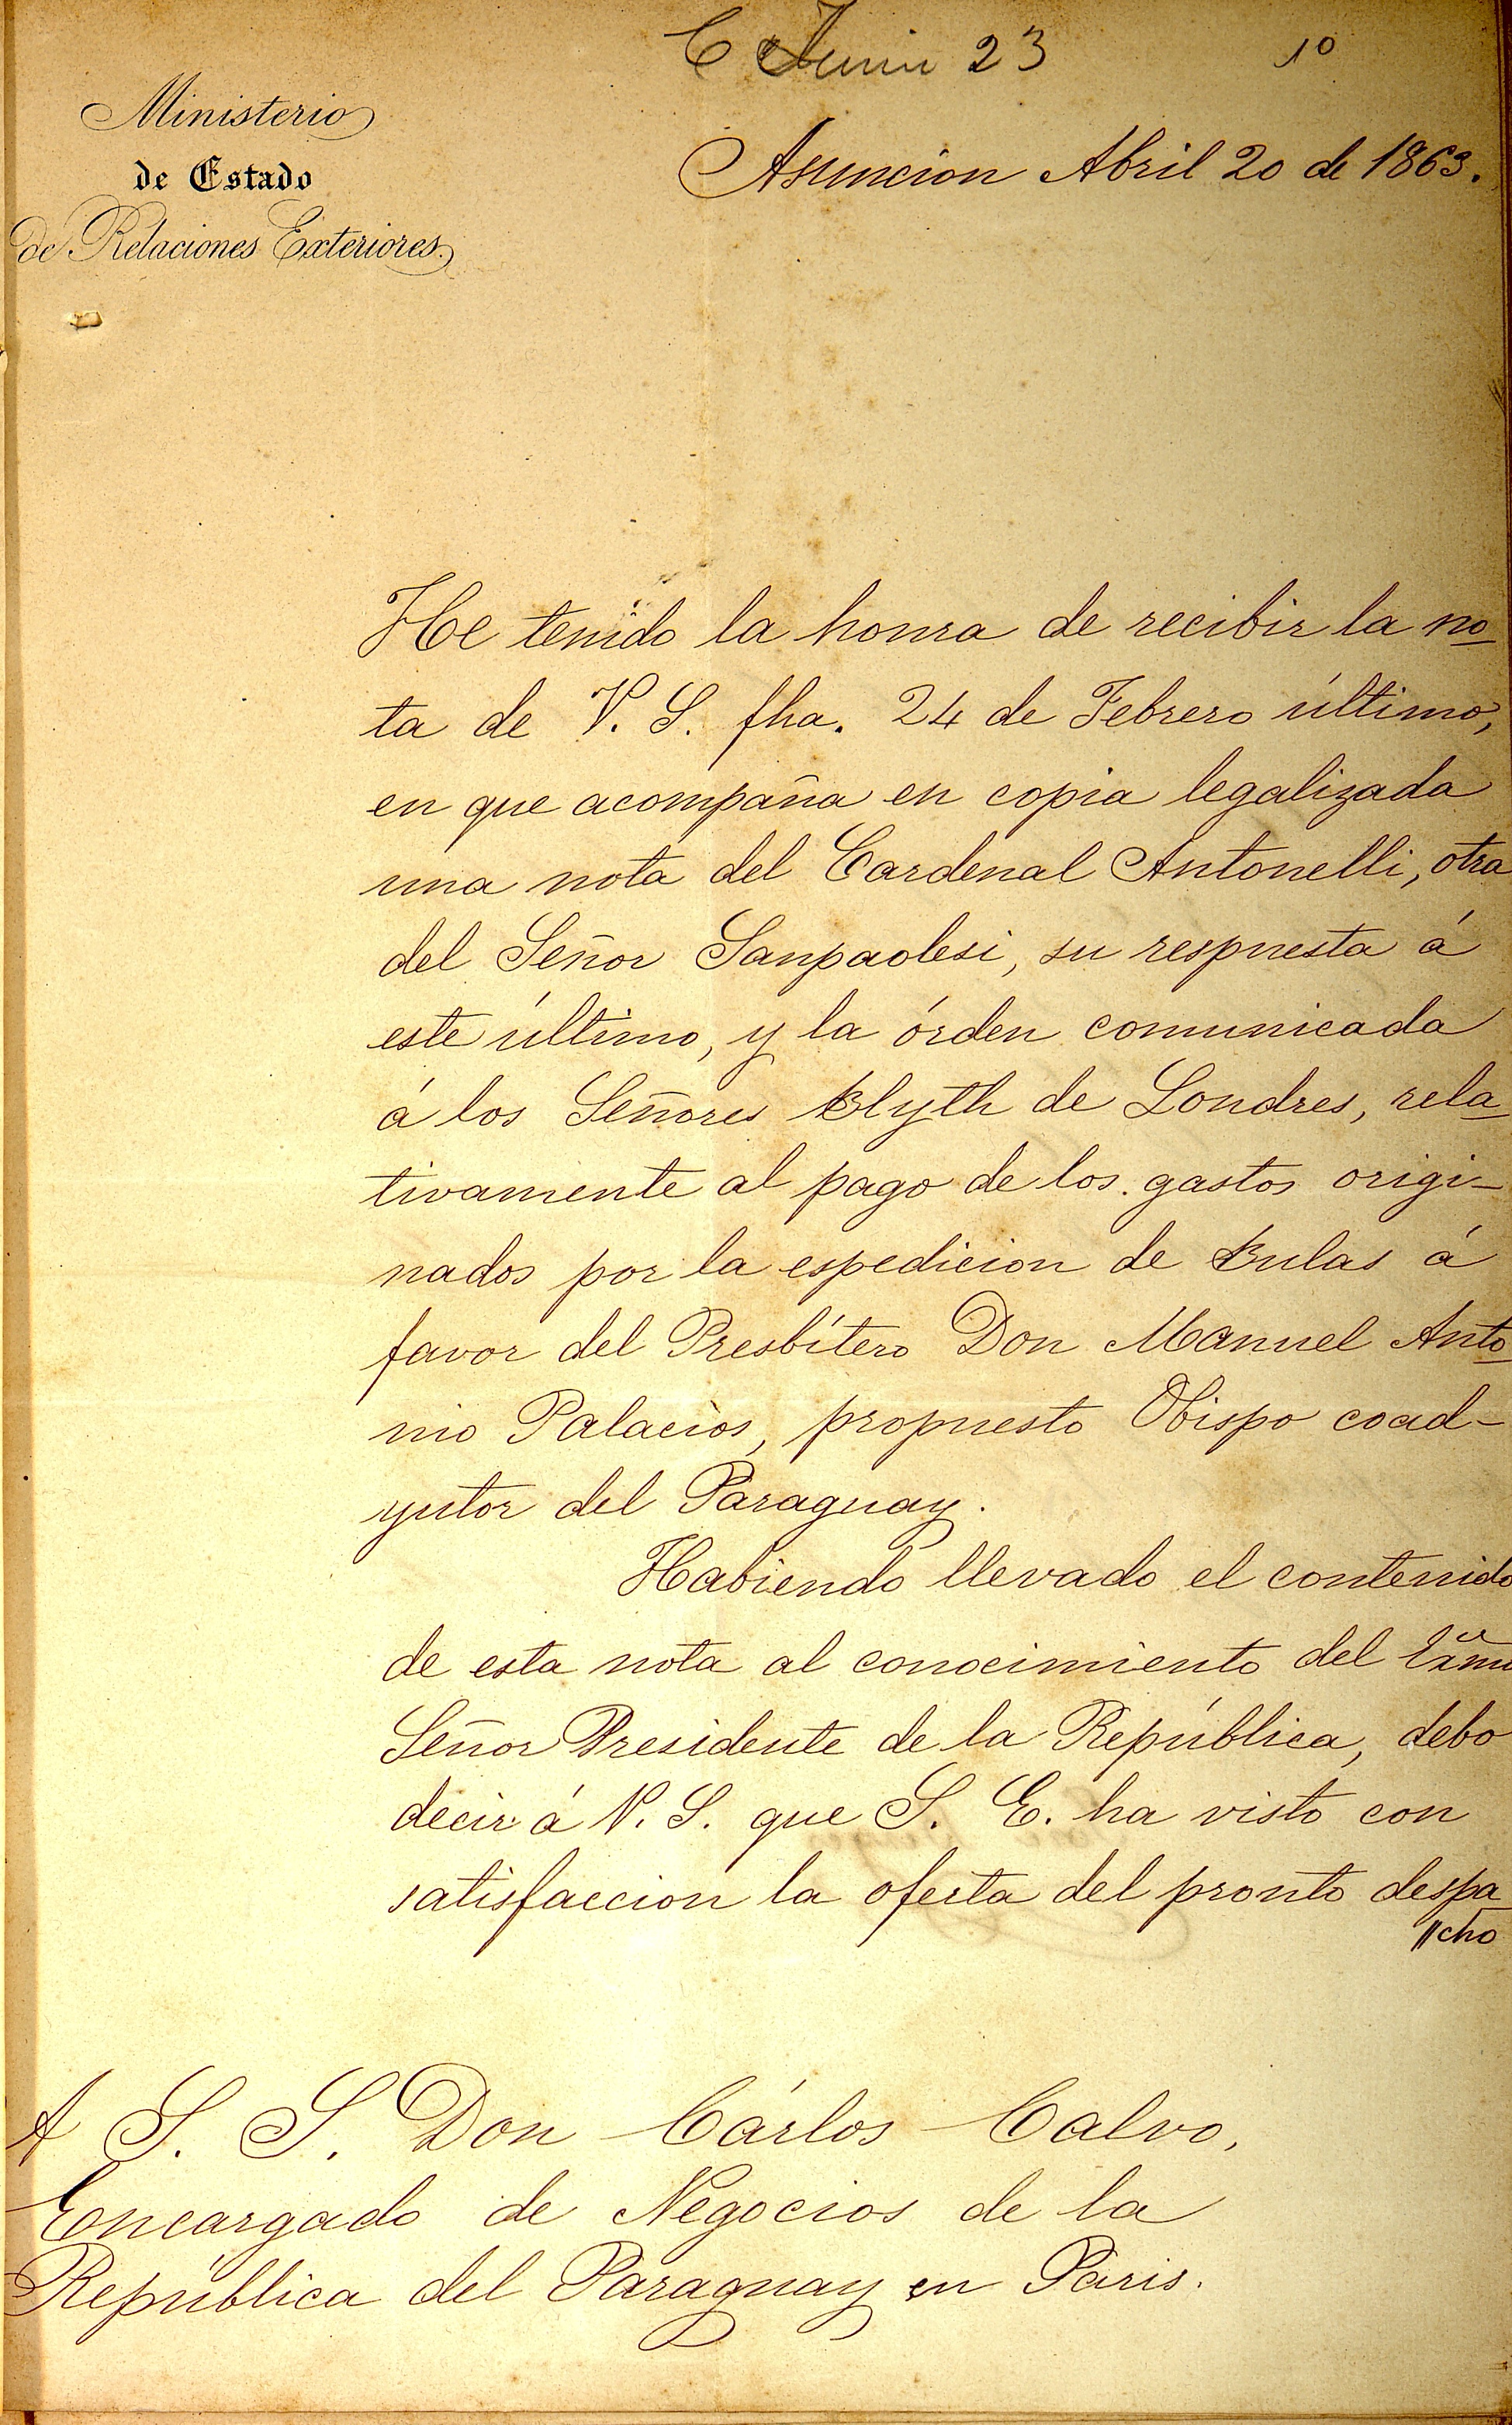 C Junio 23 1º
Ministerio
de Estado
de Relaciones Exteriores.
Asuncion Abril 20 de 1863.
He tenido la honra de recibir la no
ta de V. S. fha. 24 de Febrero último,
en que acompaña en copia legalizada
una nota del Cardenal Antonelli, otra
del Señor Sanpaolesi, su respuesta á
este último, y la órden comunicada
á los Señores Blyth de Londres, rela
tivamente al pago de los gastos origi-
nados por la espedicion de Bulas á
favor del Presbítero Don Manuel Anto
nio Palacios, propuesto Obispo coad-
yutor del Paraguay.
Habiendo llevado el contenido
de esta nota al conocimiento del Exmo
Señor Presidente de la República, debo
decir á V. S. que S. E. ha visto con
satisfaccion la oferta del pronto despa
//cho
A S. S. Don Cárlos Calvo,
Encargado de Negocios de la
República del Paraguay en Paris.